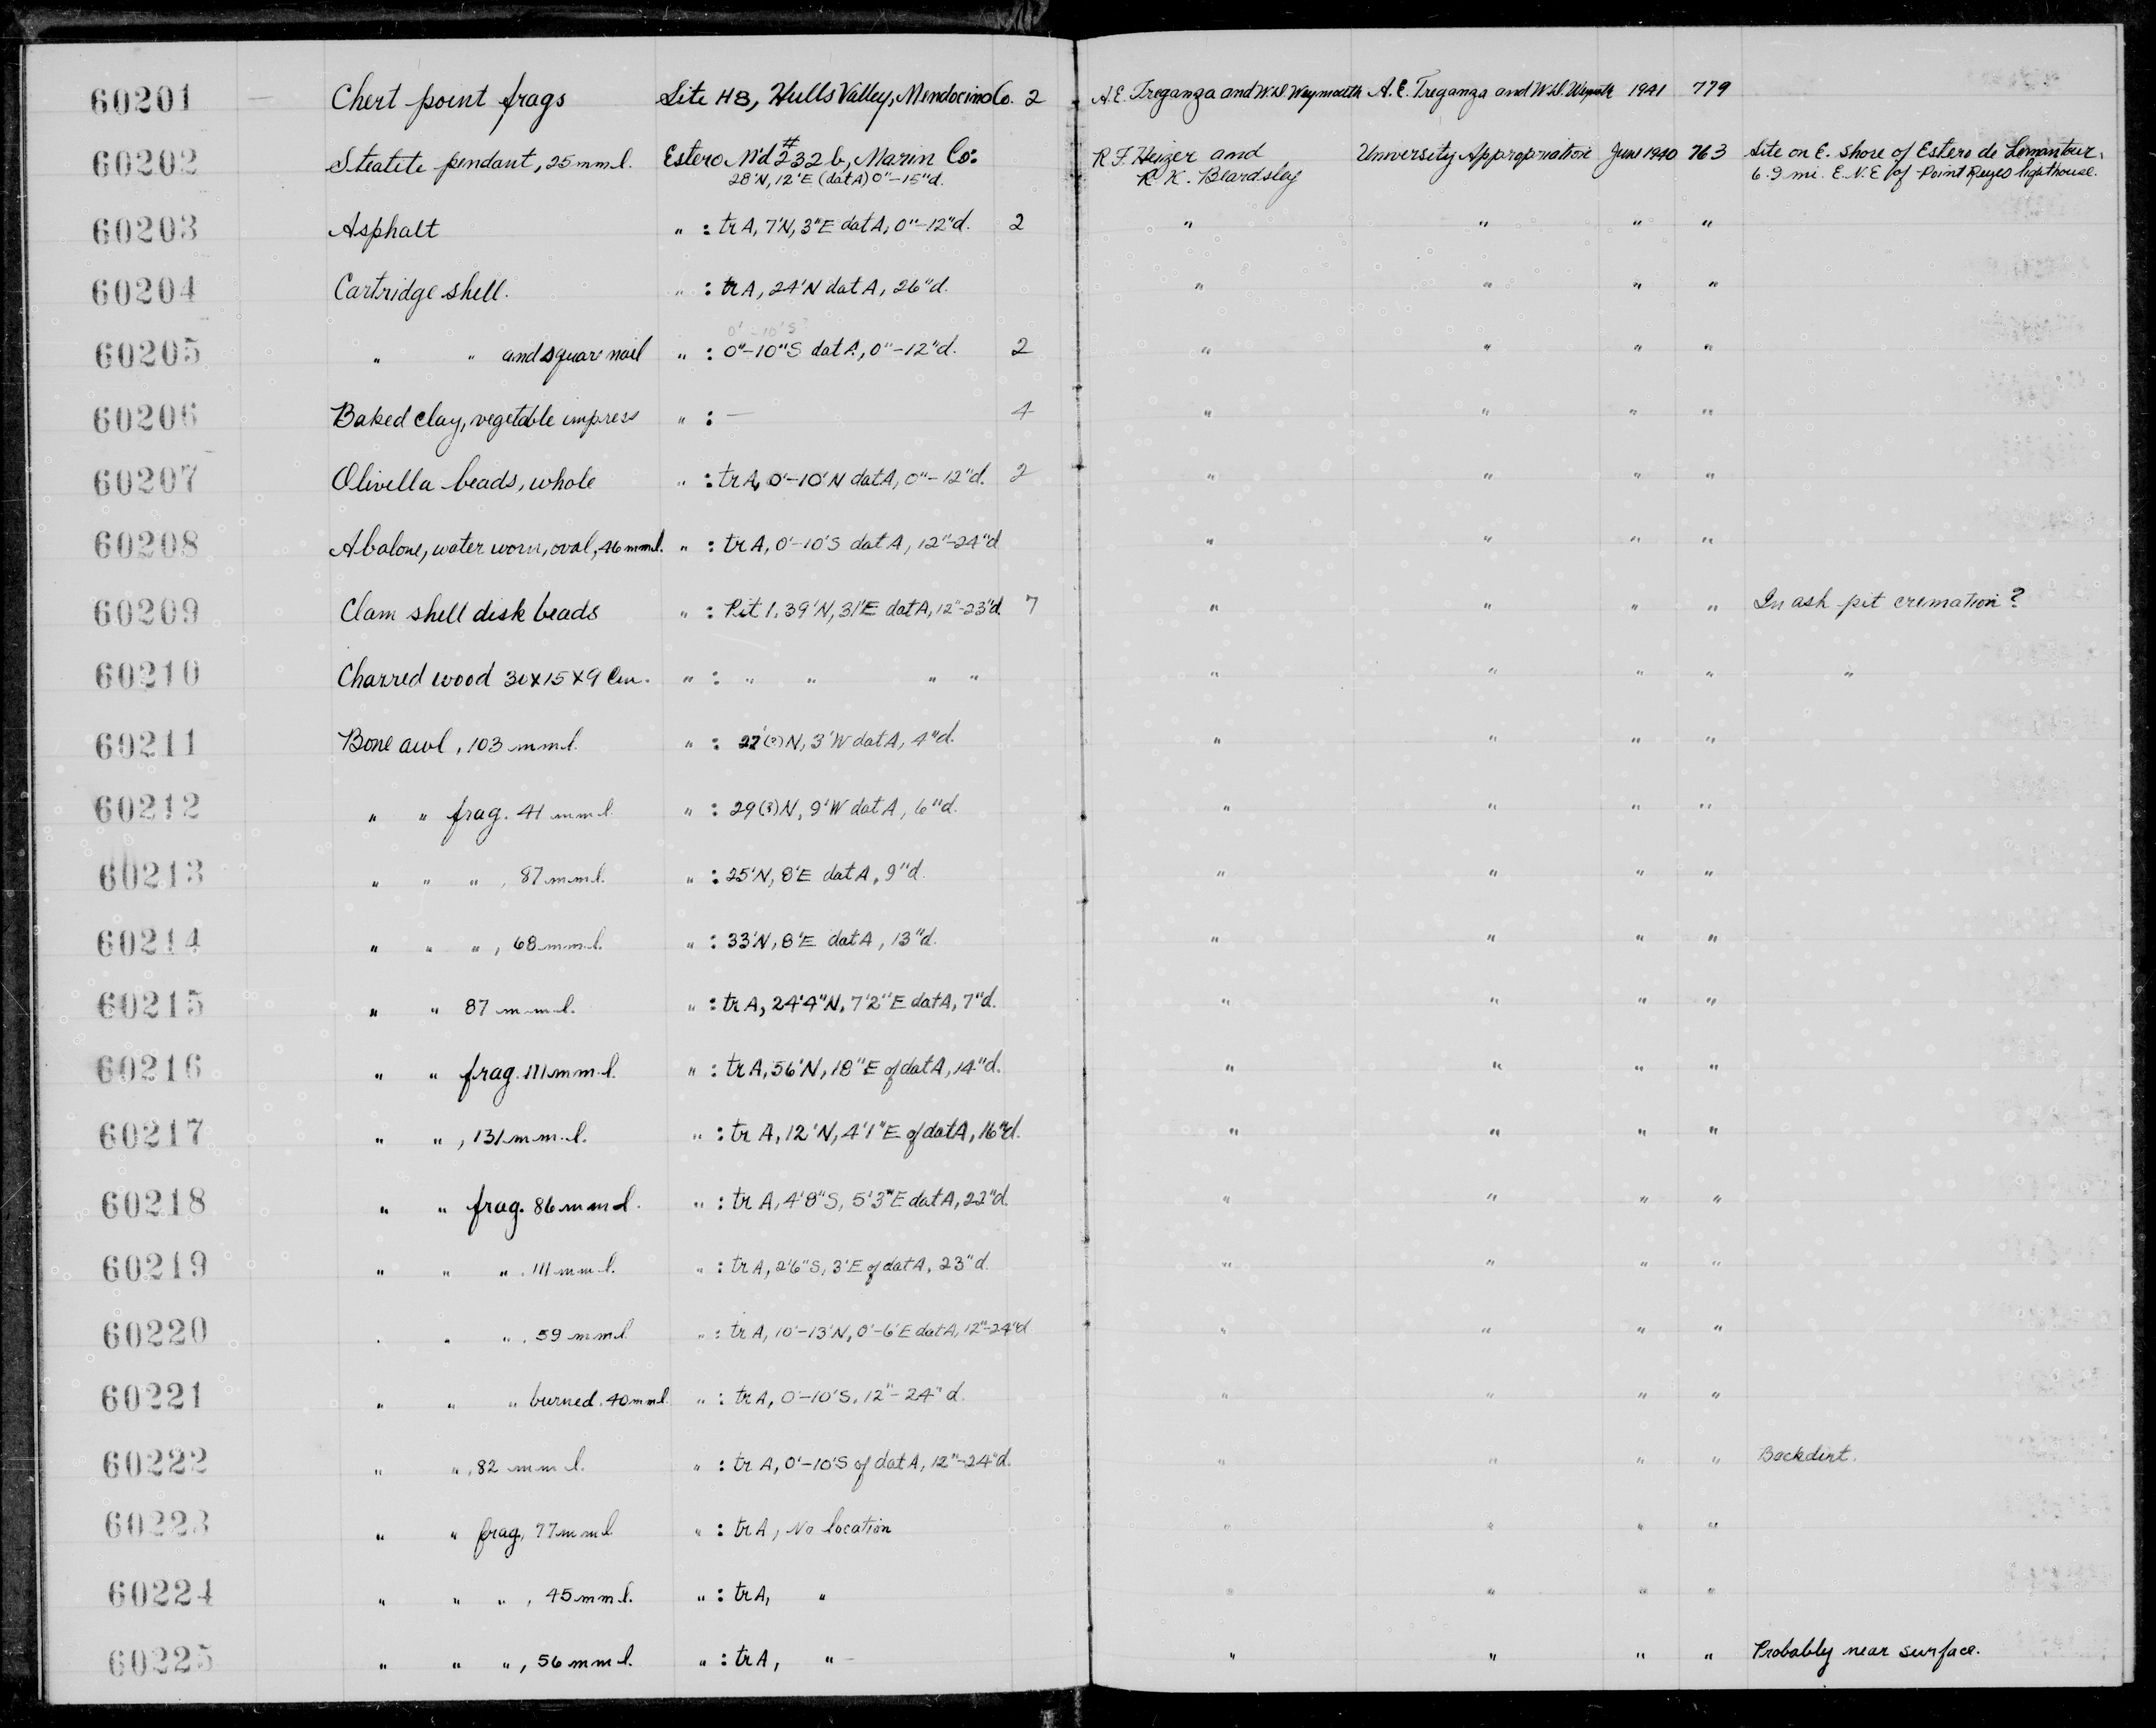 60201 — Chert point frags Site H8, Hulls Valley, Mendocino Co. 2 A.E. Treganza and W.D. Weymouth A.E. Treganza and W.D. 1941 779
60202 Steatite pendant, 25 mm l. Estero M'd #232 b, Marin Co: R.F. Heizer and University Appropriation June 1940 763 Site on E. shore of Estero de Lemantour,
28'N, 12'E (dat A) 0"-15"d. R.K. Beardsley 6.9 mi. E.N.E of Point Reyes lighthouse.
60203 Asphalt " : tr A, 7'N, 3"E dat A, 0"-12"d. 2 " " " "
60204 Cartridge shell. " : tr A, 24'N dat A, 26"d. " " " "
0'-10'S?
60205 " " and square nail " : 0"-10"S dat A, 0"-12"d. 2 " " " "
60206 Baked clay, vegetable impress " : — 4 " " " "
60207 Olivella beads, whole " : tr A, 0'-10'N dat A, 0"-12"d. 2 " " " "
60208 Abalone, water worn, oval, 46 mm l. " : tr A, 0'-10'S dat A, 12"-24"d " " " "
60209 Clam shell disk beads " : Pit 1, 39'N, 31'E dat A, 12"-23"d 7 " " " " In ash pit cremation?
60210 Charred wood 30x15x9 Cm. " : " " " " " " " " "
60211 Bone awl, 103 mm l. " : 27'(?)N, 3'W dat A, 4"d. " " " "
60212 " " frag. 41 mm l. " : 29(?)N, 9'W dat A, 6"d. " " " "
60213 " " ", 87 mm l. " : 25'N, 8'E dat A, 9"d. " " " "
60214 " " ", 68 mm l. " : 33'N, 8'E dat A, 13"d. " " " "
60215 " " 87 mm l. " : tr A, 24'4"N, 7'2"E dat A, 7"d. " " " "
60216 " " frag. 111 mm l. " : tr A, 56'N, 18"E of dat A, 14"d. " " " "
60217 " ", 131 mm l. " : tr A, 12'N, 4'1"E of dat A, 16"d. " " " "
60218 " " frag. 86 mm l. " : tr A, 4'8"S, 5'3"E dat A, 22"d. " " " "
60219 " " ", 111 mm l. " : tr A, 2'6"S, 3'E of dat A, 23"d. " " " "
60220 " " ", 59 mm l. " : tr A, 10'-13'N, 0'-6'E dat A, 12"-24"d " " " "
60221 " " " burned, 40 mm l. " : tr A, 0'-10'S, 12"-24"d. " " " "
60222 " ", 82 mm l. " : tr A, 0'-10'S of dat A, 12"-24"d. " " " " Backdirt.
60223 " " frag, 77 mm l " : tr A, No location " " " "
60224 " " ", 45 mm l. " : tr A, " " " " "
60225 " " ", 56 mm l. " : tr A, " " " " " Probably near surface.